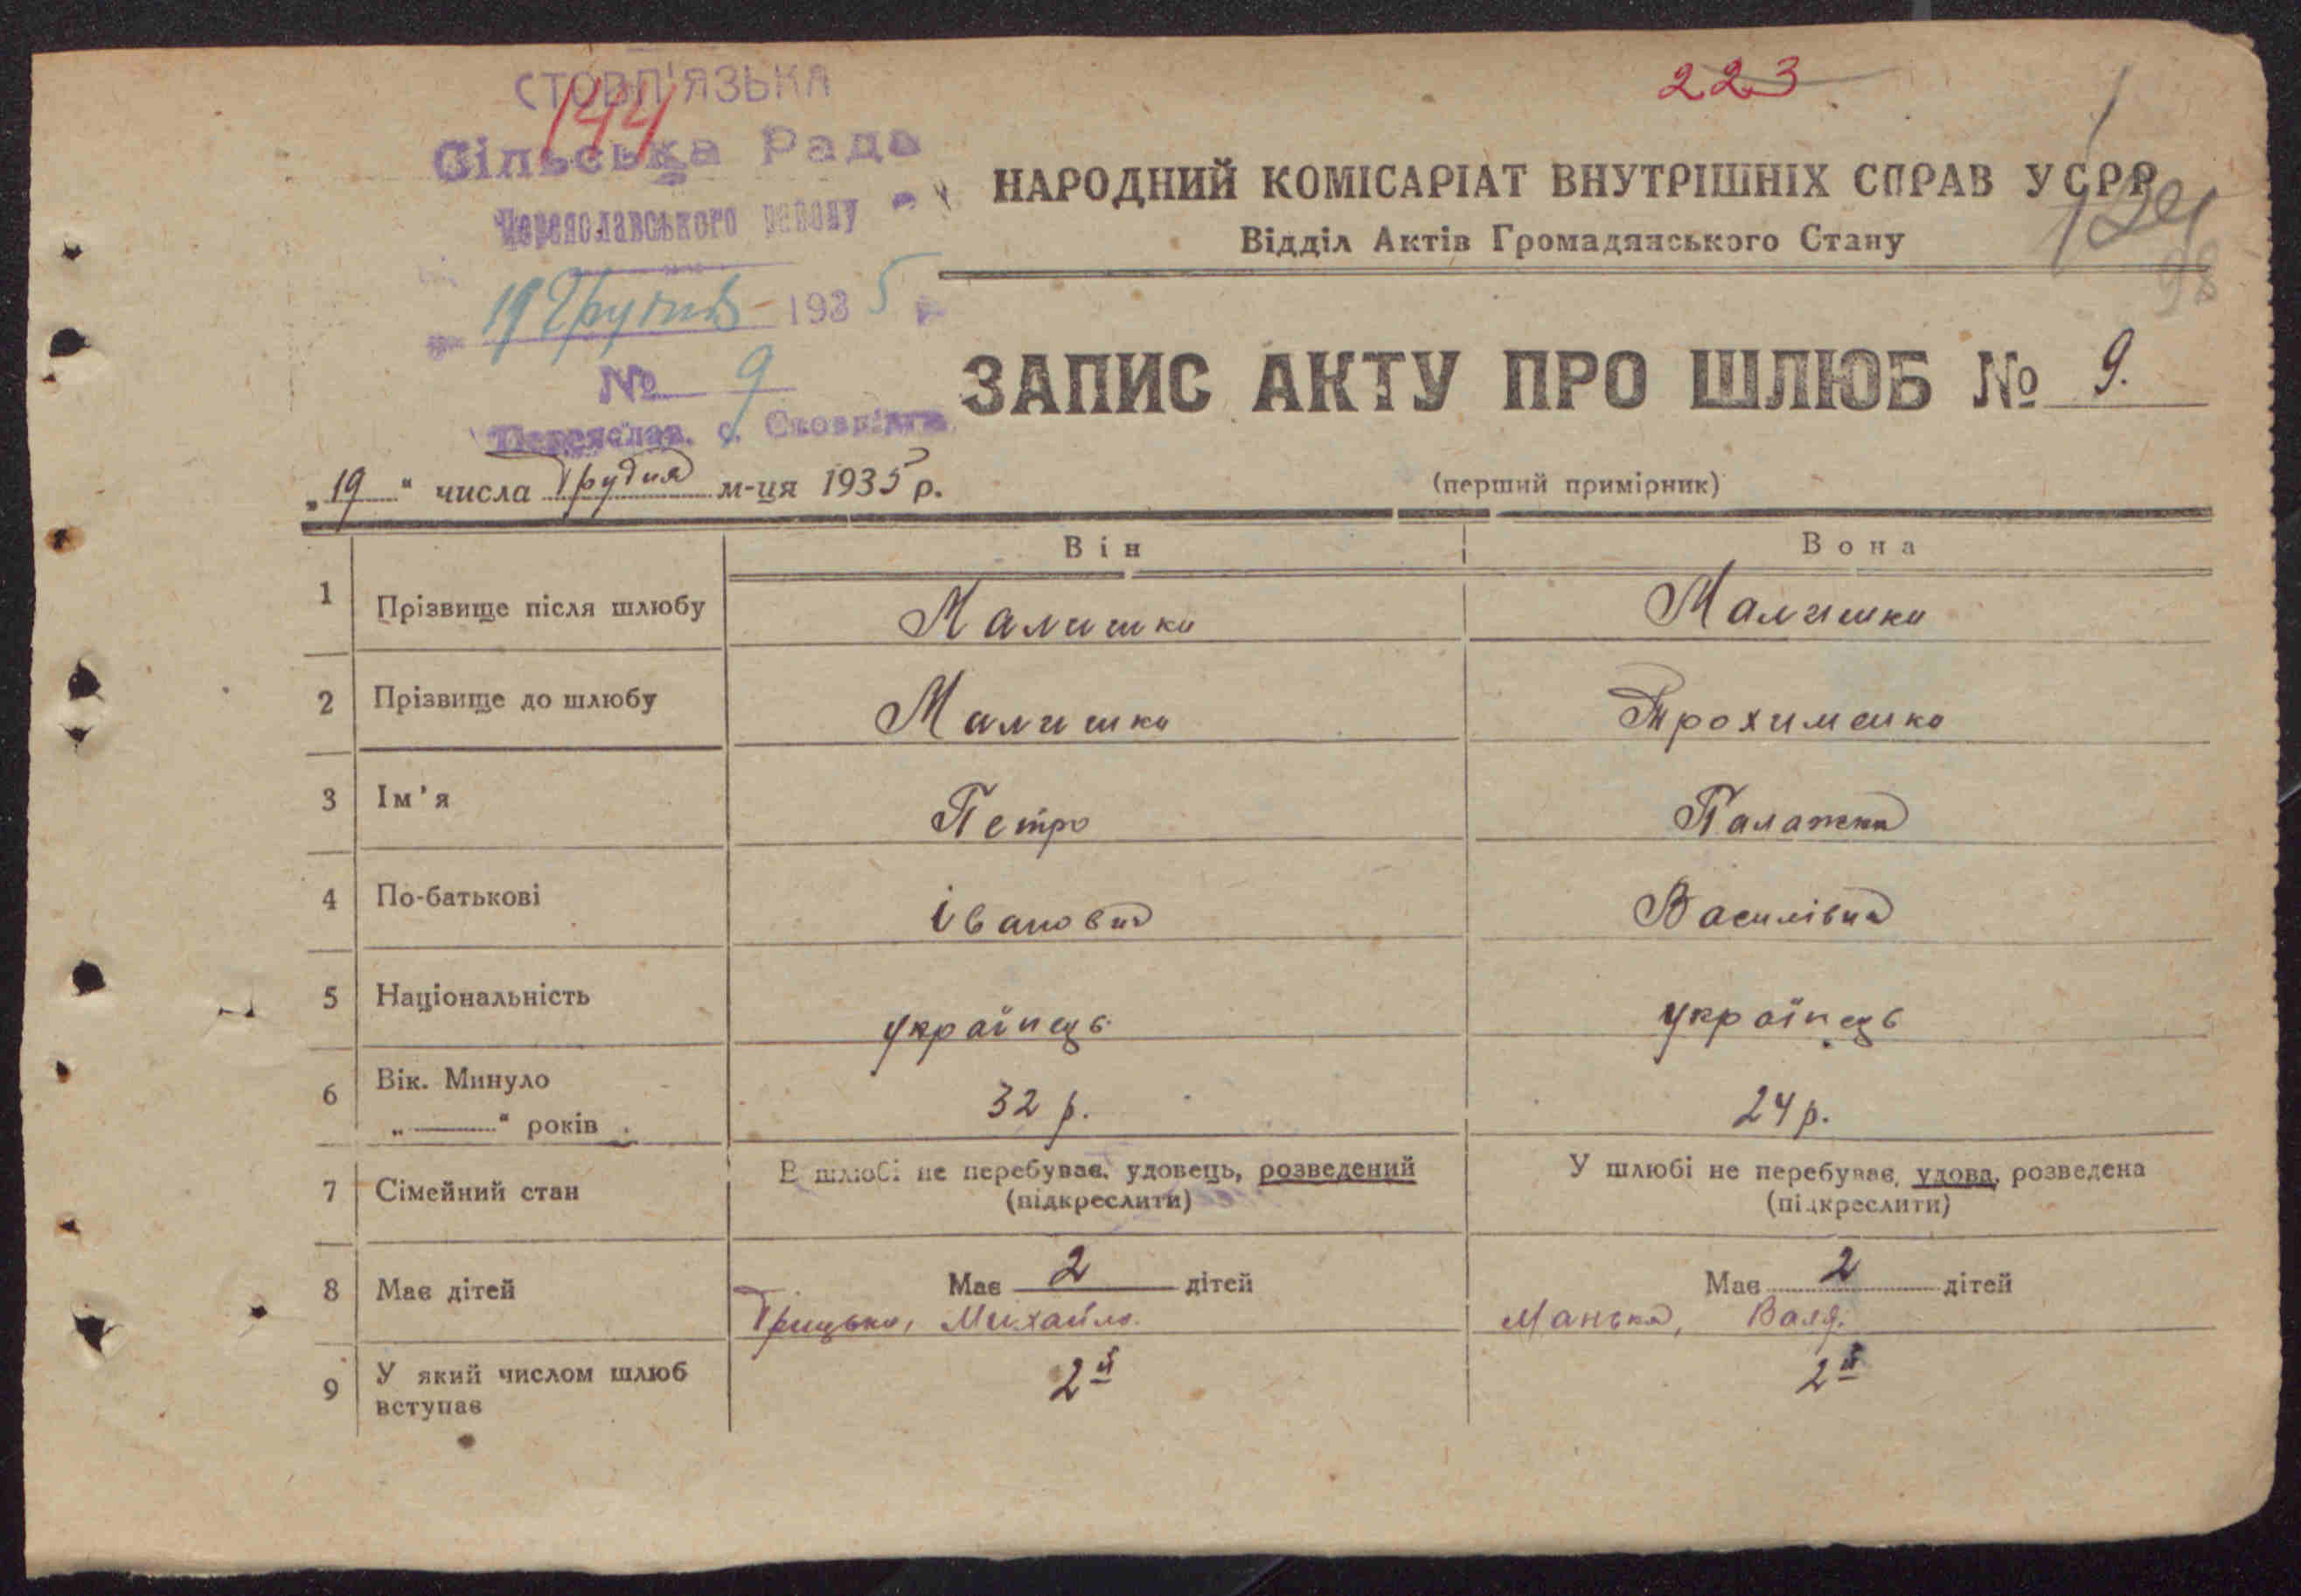 СТОВП'ЯЗЬКА
144
223
Сільська Рада
Переяславського району
НАРОДНИЙ КОМІСАРІАТ ВНУТРІШНІХ СПРАВ УСРР
Відділ Актів Громадянського Стану
98
19 Грудня 1935
№ 9
Переяслав. с. Стовп'яги
ЗАПИС АКТУ ПРО ШЛЮБ № 9.
„19" числа Грудня м-ця 1935 р.
(перший примірник)
Він Вона
1 Прізвище після шлюбу Малишко Малишко
2 Прізвище до шлюбу Малишко Трохименко
3 Ім'я Петро Палажка
4 По-батькові Іванович Василівна
5 Національність українець українець
6 Вік. Минуло „———" років 32 р. 24 р.
7 Сімейний стан В шлюбі не перебуває, удовець, розведений (підкреслити) У шлюбі не перебуває, удова, розведена (підкреслити)
8 Має дітей Має 2 дітей Має 2 дітей
Грицько, Михайло. Манька, Валя.
9 У який числом шлюб вступає 2й 2й